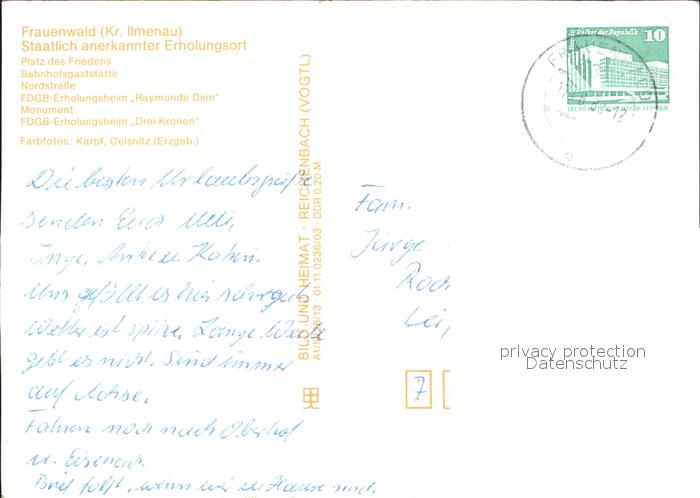 Frauenwald (Kr. Ilmenau)
Staatlich anerkannter Erholungsort
Platz des Friedens
Bahnhofsgaststätte
Nordstraße
FDGB-Erholungsheim „Raymonde Dien“
Monument
FDGB-Erholungsheim „Drei Kronen“
Farbfotos: Karpf, Oelsnitz (Erzgeb.)
Die besten Urlaubsgrüße
senden Euch Ulli,
Inge, Katrin.
Uns gefällt es hier sehr gut
Wetter ist spitze. Lange Weile
gebt es nicht. Sind immer
auf Achse.
Fahren noch nach Oberhof
u. Eisenach.
Brief folgt, wenn wir zu Hause sind.
BILD UND HEIMAT · REICHENBACH (VOGTL)
01 11 0236/03 DDR 0,20 M
Palast der Republik
10
Fam.
Jürge
Lei
7
privacy protection
Datenschutz